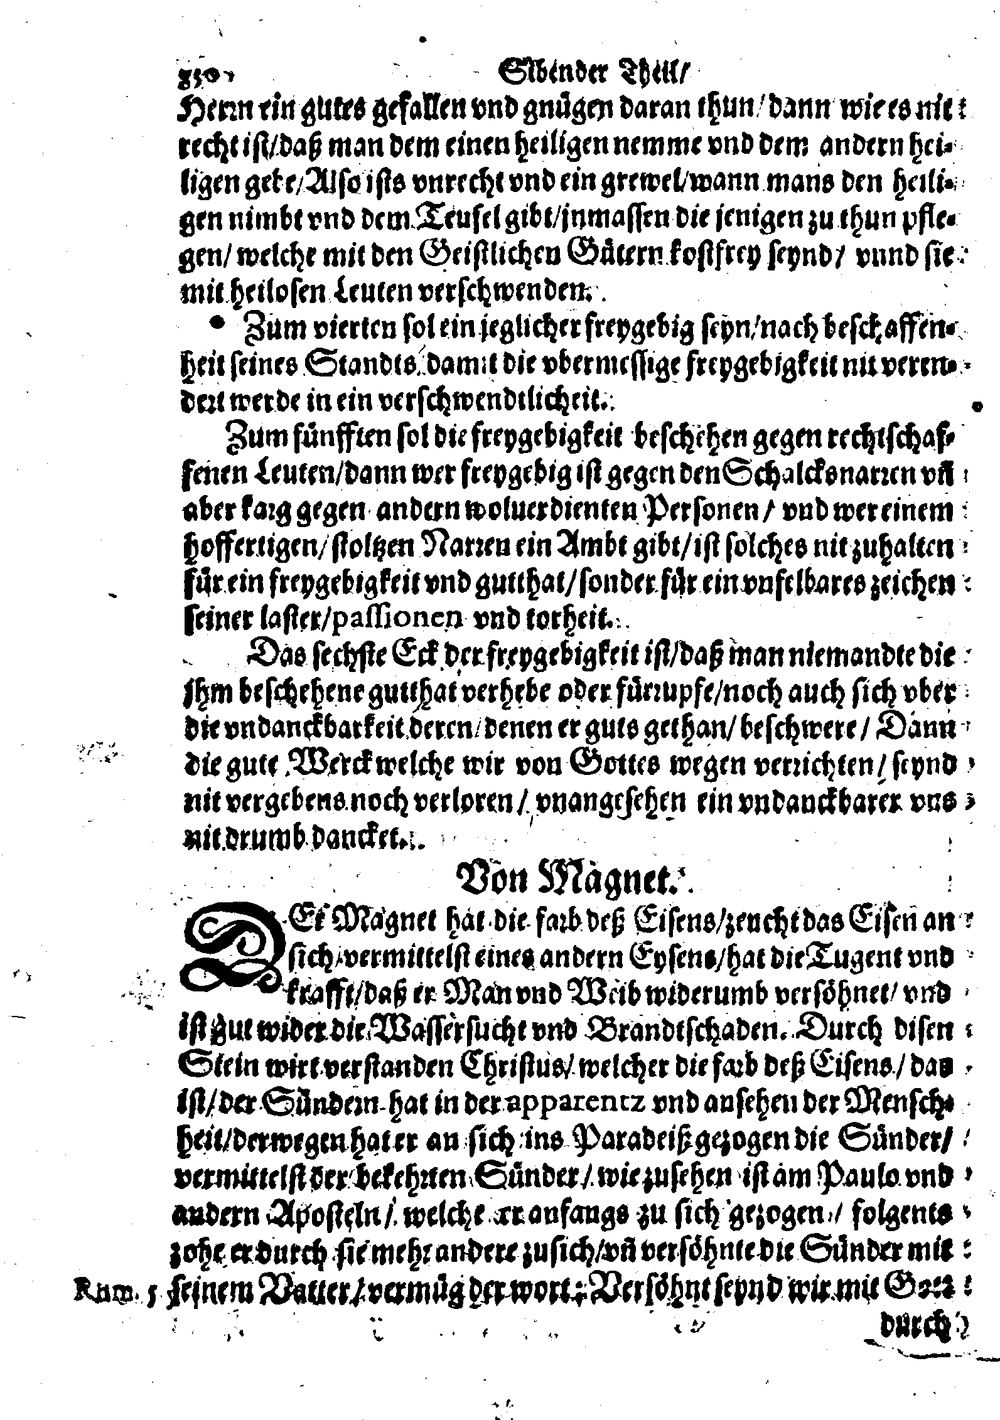 350
Sibender Theil/
Herrn ein gutes gefallen vnd gnügen daran thun/dann wie es nit
recht ist/daß man dem einen heiligen nemme vnd dem andern hei-
ligen gebe/Also ists vnrecht vnd ein grewel/wann mans den heili-
gen nimbt vnd dem Teufel gibt/inmassen die jenigen zu thun pfle-
gen/welche mit den Geistlichen Gütern kostfrey seynd/ vnnd sie
mit heilosen Leuten verschwenden.
Zum vierten sol ein jeglicher freygebig seyn/nach beschaffen-
heit seines Standts/damit die vbermessige freygebigkeit nit veren-
dert werde in ein verschwendtlicheit.
Zum fünfften sol die freygebigkeit beschehen gegen rechtschaf-
fenen Leuten/dann wer freygebig ist gegen den Schalcksnarren vñ
aber karg gegen andern woluerdienten Personen/ vnd wer einem
hoffertigen/stoltzen Narren ein Ambt gibt/ist solches nit zuhalten
für ein freygebigkeit vnd gutthat/sonder für ein vnfelbares zeichen
seiner laster/passionen vnd torheit.
Das sechste Eck der freygebigkeit ist/daß man niemandte die
jhm beschehene gutthat verhebe oder fürrupfe/noch auch sich vber
die vndanckbarkeit deren/denen er guts gethan/beschwere/ Dann
die gute Werck welche wir von Gottes wegen verrichten/seynd
nit vergebens noch verloren/ vnangesehen ein vndanckbarer vns
nit drumb dancket.
Von Magnet.
DEr Magnet hat die farb deß Eisens/zeucht das Eisen an
sich/vermittelst eines andern Eysens/hat die Tugent vnd
krafft/daß er Man vnd Weib widerumb versöhnet/ vnd
ist gut wider die Wassersucht vnd Brandtschaden. Durch disen
Stein wirt verstanden Christus/welcher die farb deß Eisens/das
ist/der Sündern hat in der apparentz vnd ansehen der Mensch-
heit/derwegen hat er an sich ins Paradeiß gezogen die Sünder/
vermittelst der bekehrten Sünder/wie zusehen ist am Paulo vnd
andern Aposteln/ welche er anfangs zu sich gezogen/ folgents
zohe er durch sie mehr andere zu sich/vñ versöhnte die Sünder mit
Rom. 5 seinem Vatter/vermüg der wort: Versöhnt seynd wir mit Gott
durch